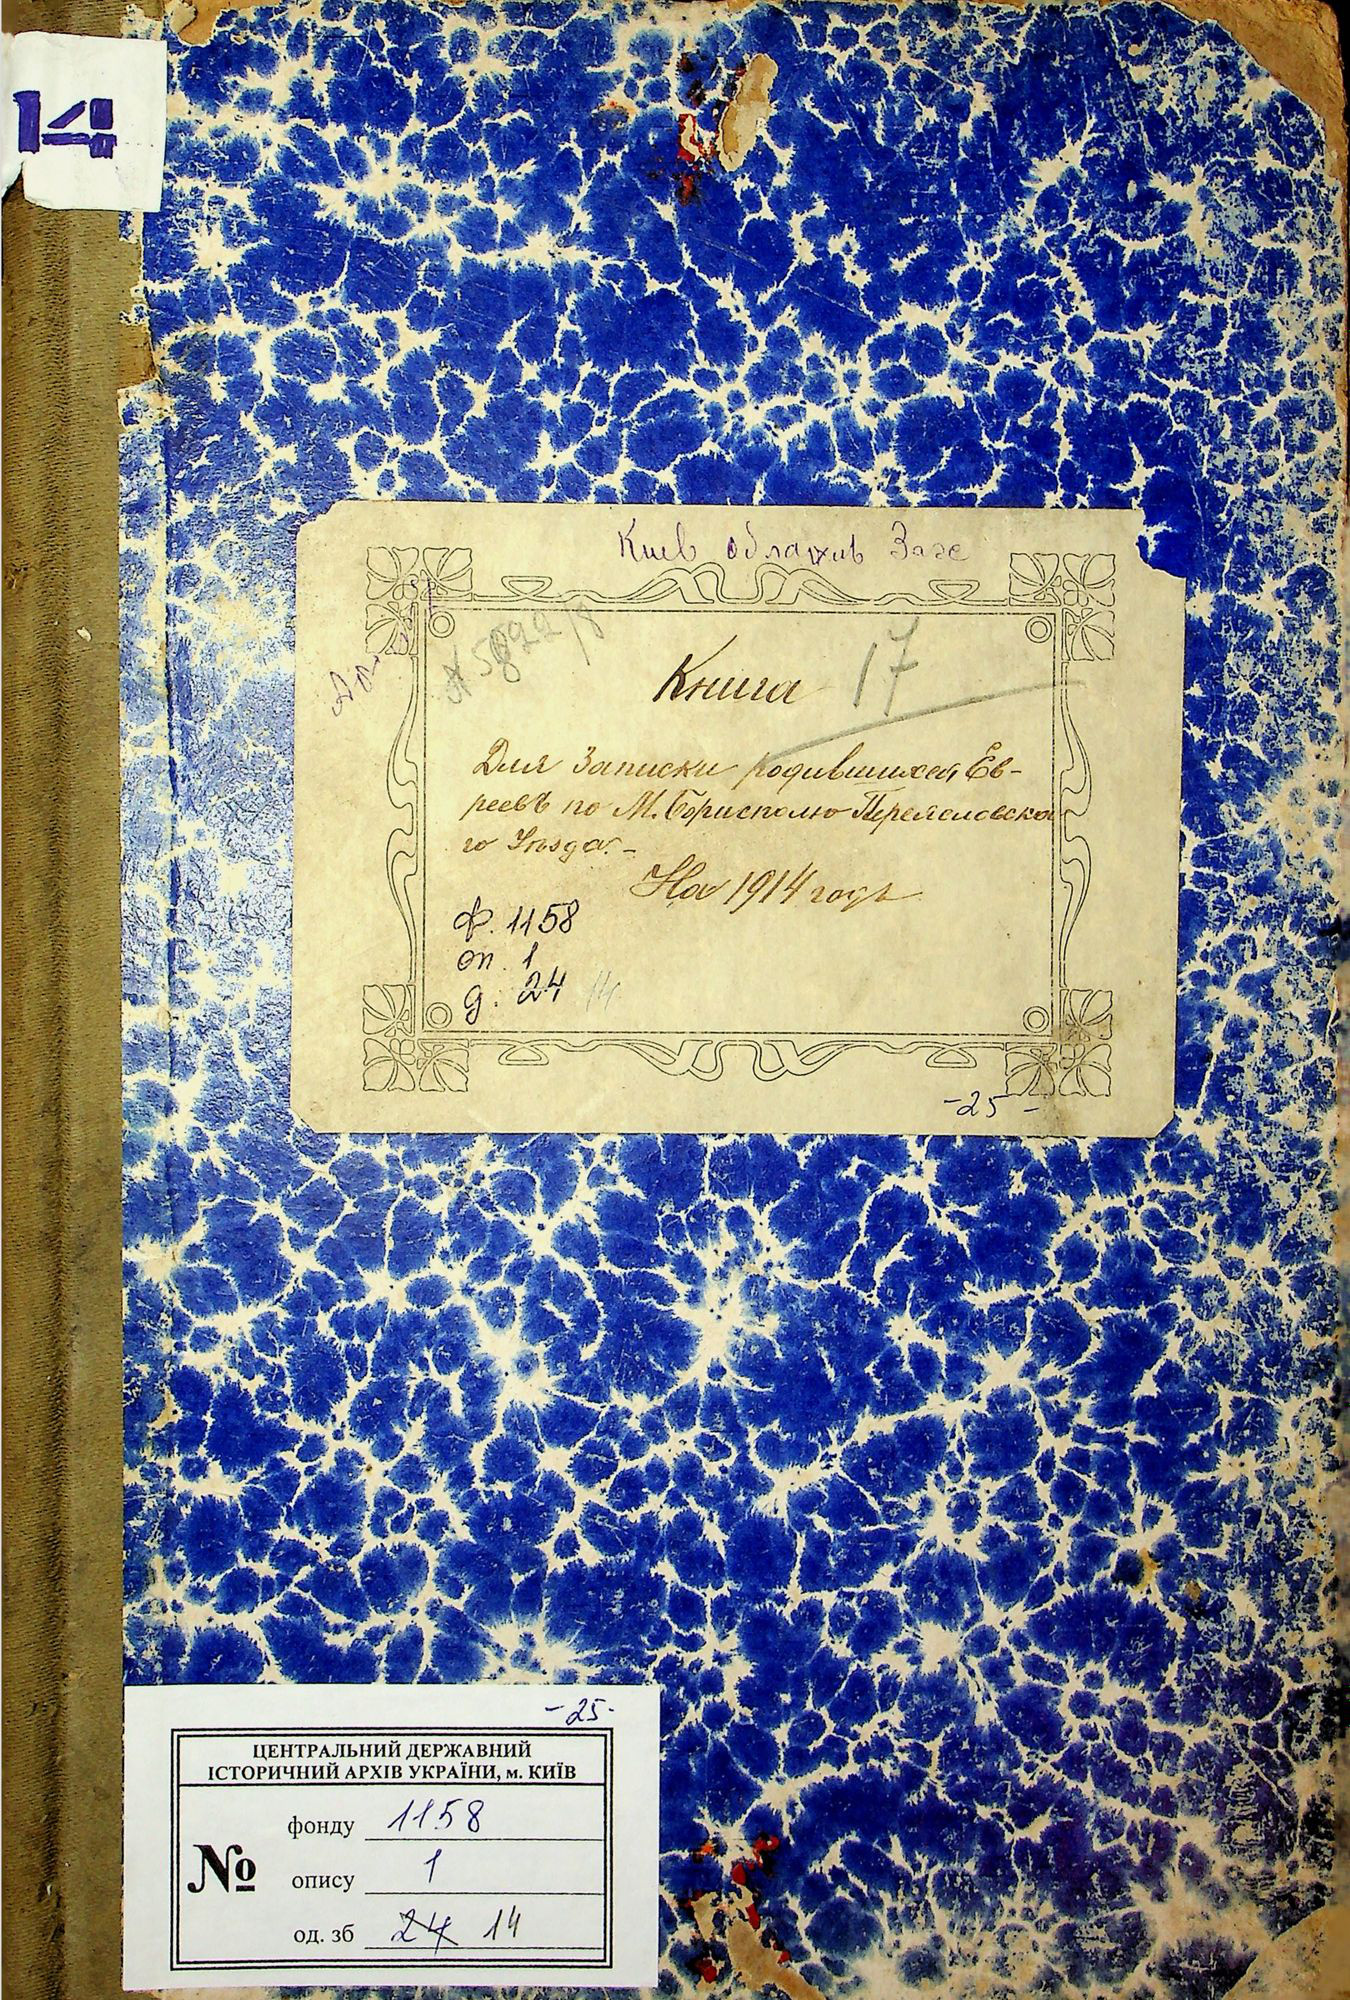 14
Киев облархив Загс
№ 5822/8
Книга 17
Для Записки родившихся Ев-
реевъ по М. Борисполю Переяславско-
го Уѣзда. -
На 1914 годъ
ф. 1158
оп. 1
д. 24 14
- 25 -
- 25 -
ЦЕНТРАЛЬНИЙ ДЕРЖАВНИЙ
ІСТОРИЧНИЙ АРХІВ УКРАЇНИ, м. КИЇВ
фонду 1158
№ опису 1
од. зб 24 14